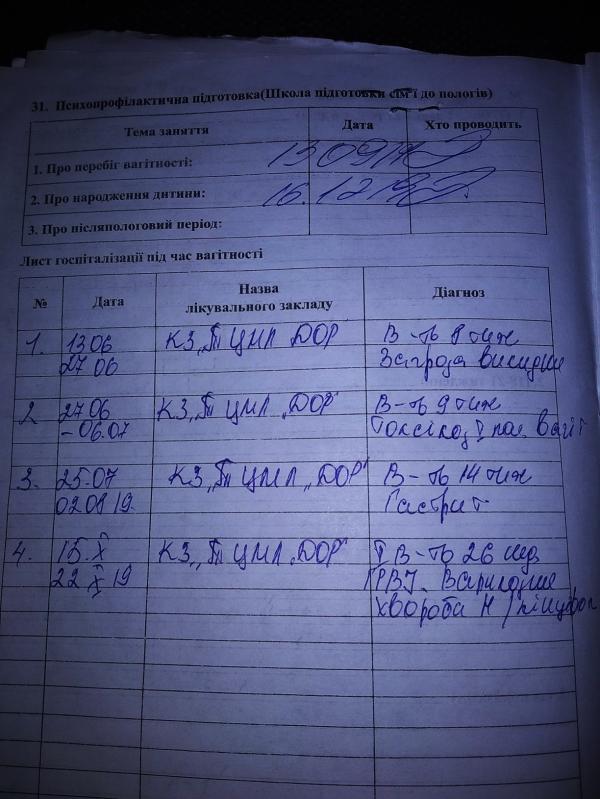 31. Психопрофілактична підготовка(Школа підготовки сім'ї до пологів)
Тема заняття Дата Хто проводить
1. Про перебіг вагітності: 13 09 19
2. Про народження дитини: 16.12 19
3. Про післяпологовий період:
Лист госпіталізації під час вагітності
№ Дата Назва лікувального закладу Діагноз
1. 13 06 КЗ „Тт ЦМЛ „ДОР" В-ть 8 тиж
27 06 Загроза викидня
2 27 06 КЗ „Тт ЦМЛ „ДОР" В-ть 9 тиж
-06.07 Токсикоз I пол. вагіт
3. 25.07 КЗ „Тт ЦМЛ „ДОР" В-ть 14 тиж
02 08 19. Гастрит
4. 15.X КЗ „Тт ЦМЛ „ДОР" I В-ть 26 нед
22 X 19 ГРВІ. Варикозне
хвороба Н/кінцівок